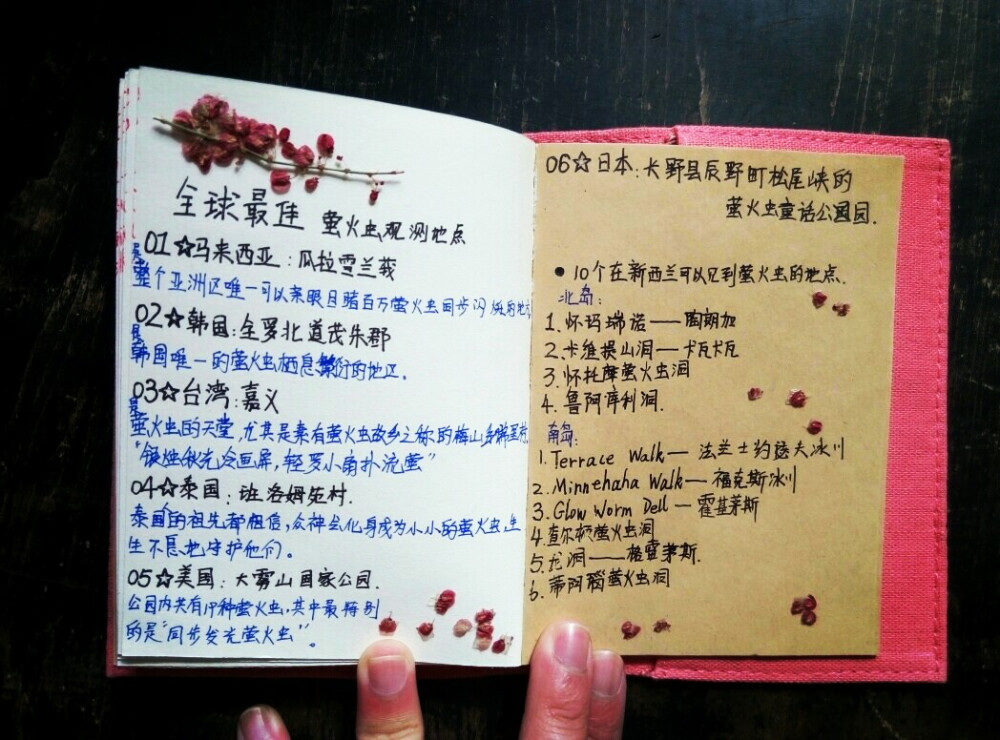 全球最佳 萤火虫观测地点
01☆马来西亚:瓜拉雪兰莪
是整个亚洲区唯一可以亲眼目睹百万萤火虫同步闪烁的地方
02☆韩国:全罗北道茂朱郡
是韩国唯一的萤火虫栖息繁衍的地区.
03☆台湾:嘉义
是萤火虫的天堂,尤其是素有萤火虫故乡之称的梅山乡瑞里村
“银烛秋光冷画屏,轻罗小扇扑流萤”
04☆泰国:
泰国的祖先都相信,众神会化身成为小小的萤火虫生
生不息地守护他们。
05☆美国:大雾山国家公园.
公园内共有19种萤火虫,其中最特别
的是“同步发光萤火虫”。
06☆日本:长野县辰野町松尾峡的
萤火虫童话公园.
●10个在新西兰可以见到萤火虫的地点.
北岛:
1.怀玛瑞诺——陶朗加
2.卡维提山洞—卡瓦卡瓦
3.怀托摩萤火虫洞
4.鲁阿库利洞.
南岛:
1.Terrace Walk—法兰士约瑟夫冰川
2.Minnehaha Walk—福克斯冰川
3.Glow Worm Dell—霍基茅斯
4.查尔顿萤火虫洞
5.龙洞——格雷茅斯.
6.蒂阿瑙萤火虫洞